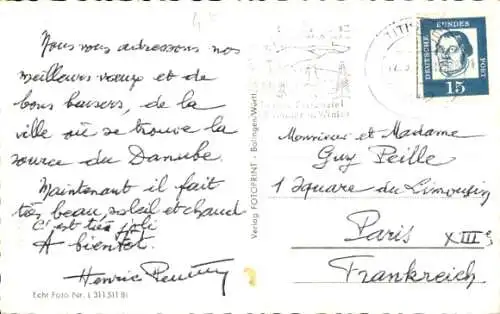 Nous vous adressons nos
meilleurs vœux et de
bons baisers, de la
ville où se trouve la
source du Danube.
Maintenant il fait
très beau, soleil et chaud
C'est très joli
A bientôt.
Henric
Echt Foto Nr. L 311 511 Bi
Verlag FOTOPRINT - Balingen/Württ.
TITI
DEUTSCHE BUNDES POST
15
Monsieur et Madame
Guy Peille
1 Square du Limousin
Paris XIIIe
Frankreich